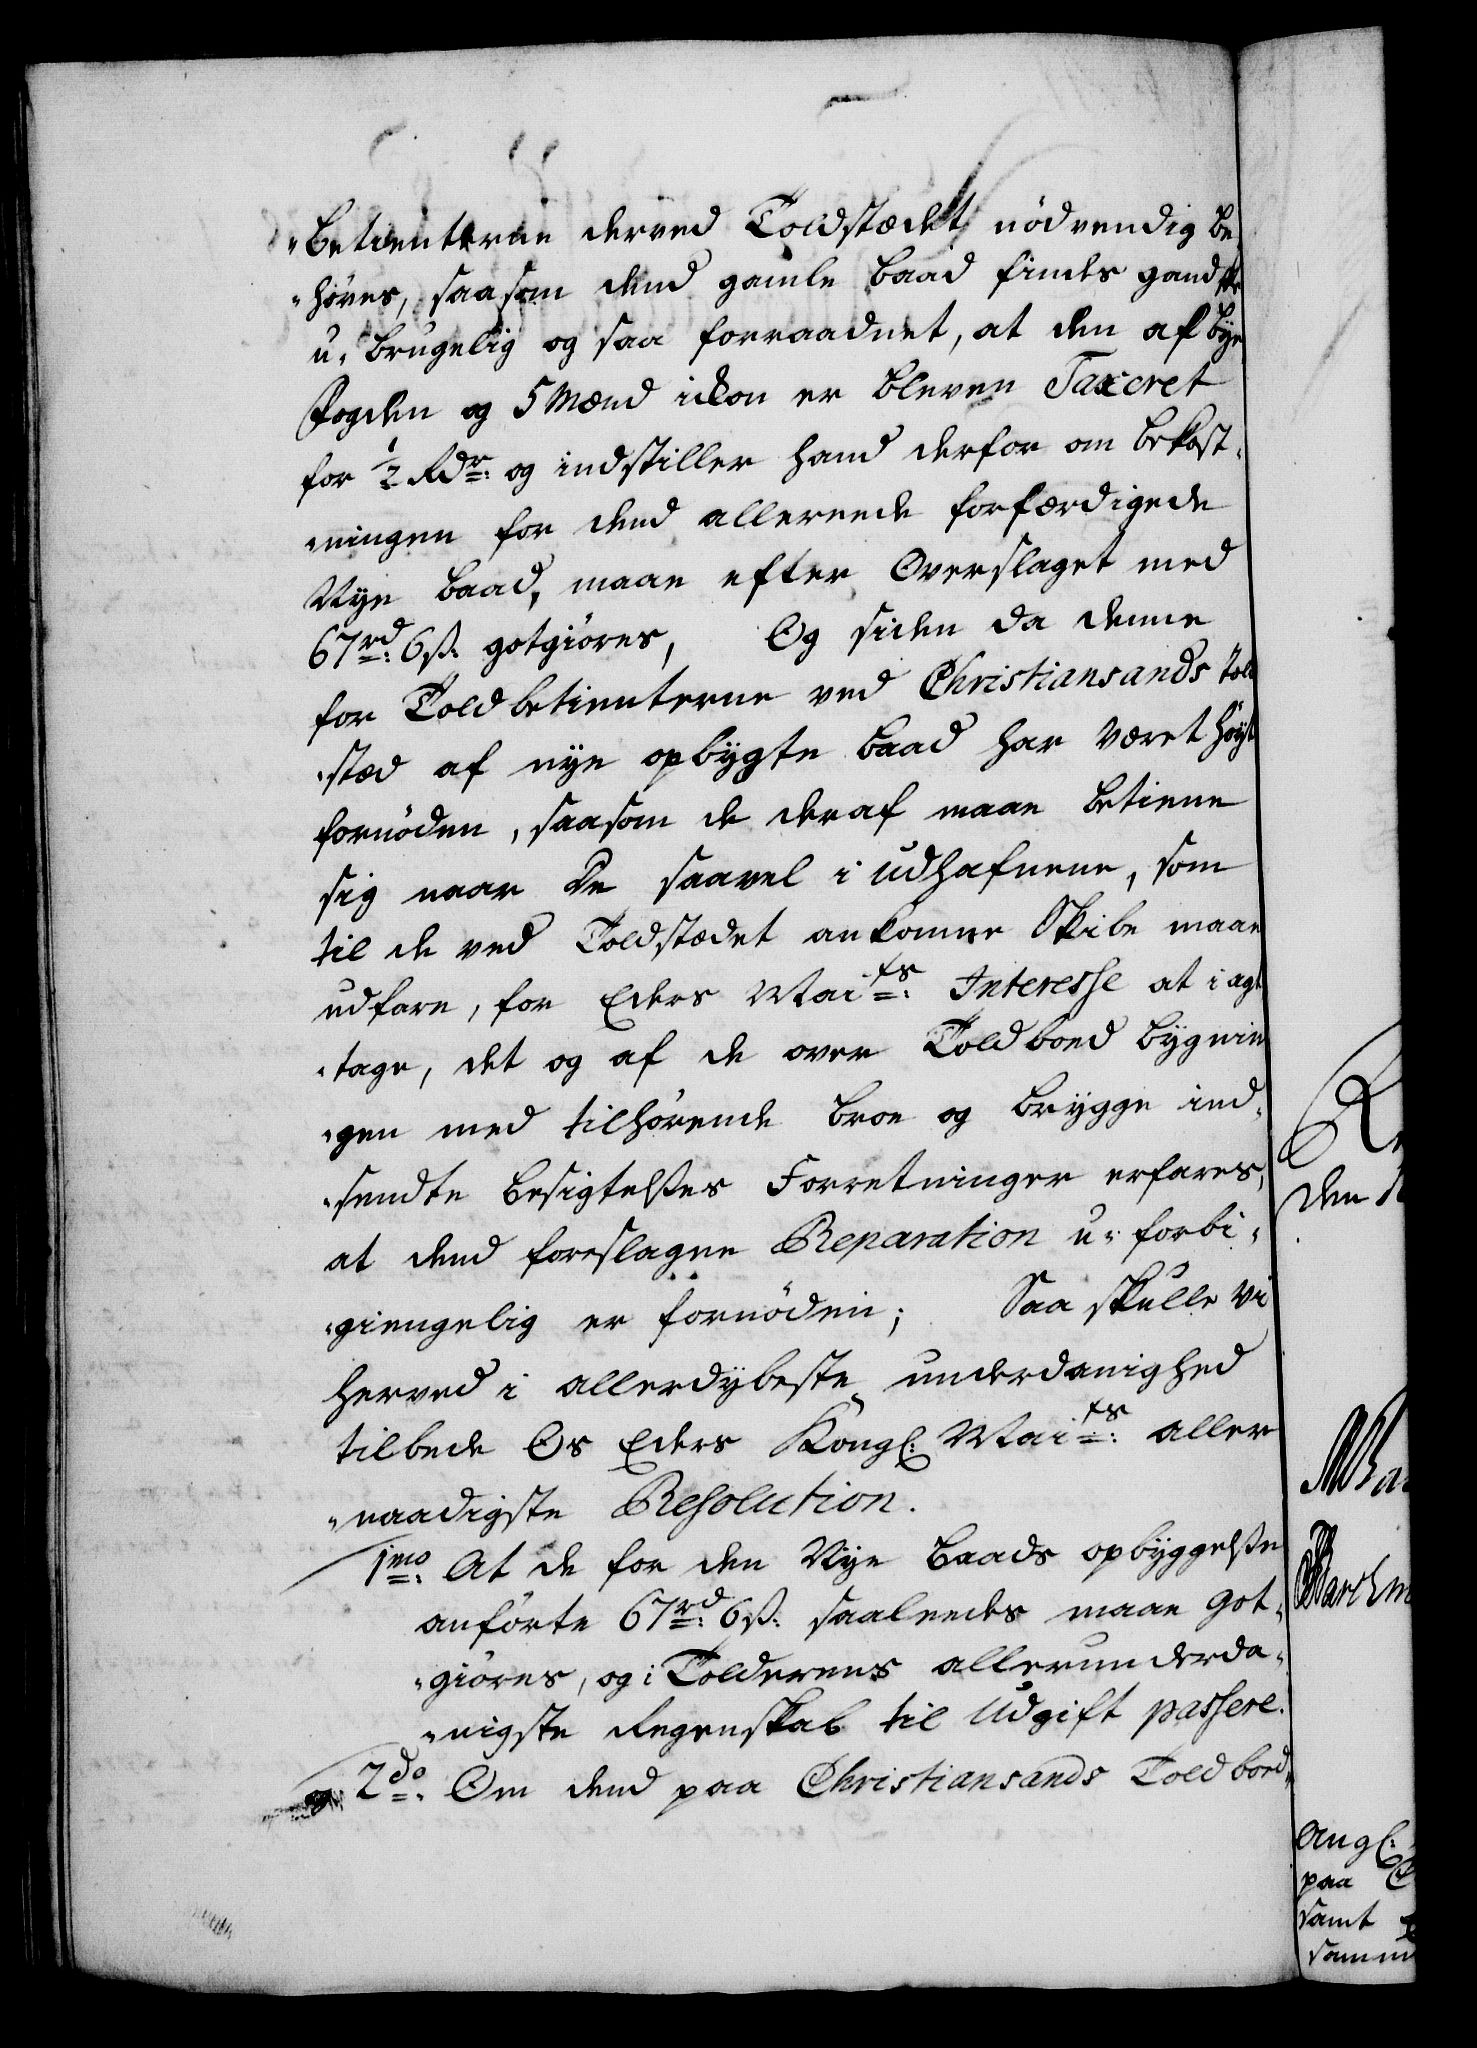 „Betienterne derved Toldstædet nödvendig be„
„höves, saasom dend gamle baad findes gandske
u„brugelig og saa forraadnet, at den af bye
fogden og 5 Mænd ickon er bleven Taxeret
for ½ Rdr: og indstiller hand derfor om bekost„
„ningen for dend allereede forfærdigede
Nye baad, maae efter Overslaget med
67rd: 6ß. gotgiöres, Og siden da denne
for Toldbetienterne ved Christiansands told
„stæd af nye opbygte baad har været höyst
fornöden, saasom de deraf maae betiene
sig naar De saavel i udhafnene, som
til de ved Toldstædet ankomne Skibe maae
udfare, for Eders Maits: Interesse at i agt
„tage, det og af de over Toldboed bygnin
„gen med tilhörende broe og brygge ind„
„sendte besigtelses Forretninger erfares,
at dend foreslagne Reparation u„forbi„
„giengelig er fornöden; Saa skulle vi
herved i allerdybeste underdanighed
tilbede Os Eders Kongl: Maits: aller
„naadigste Resolution.
1mo: At de for den Nye baads opbyggelse
anförte 67rd: 6ß. saaleedes maae got„
„giöres, og i Tolderens allerunderda„
„nigste Regenskab til Udgift passere.
og 2do: Om dend paa Christiansands Toldboed„
den
Angl:
paa
samt